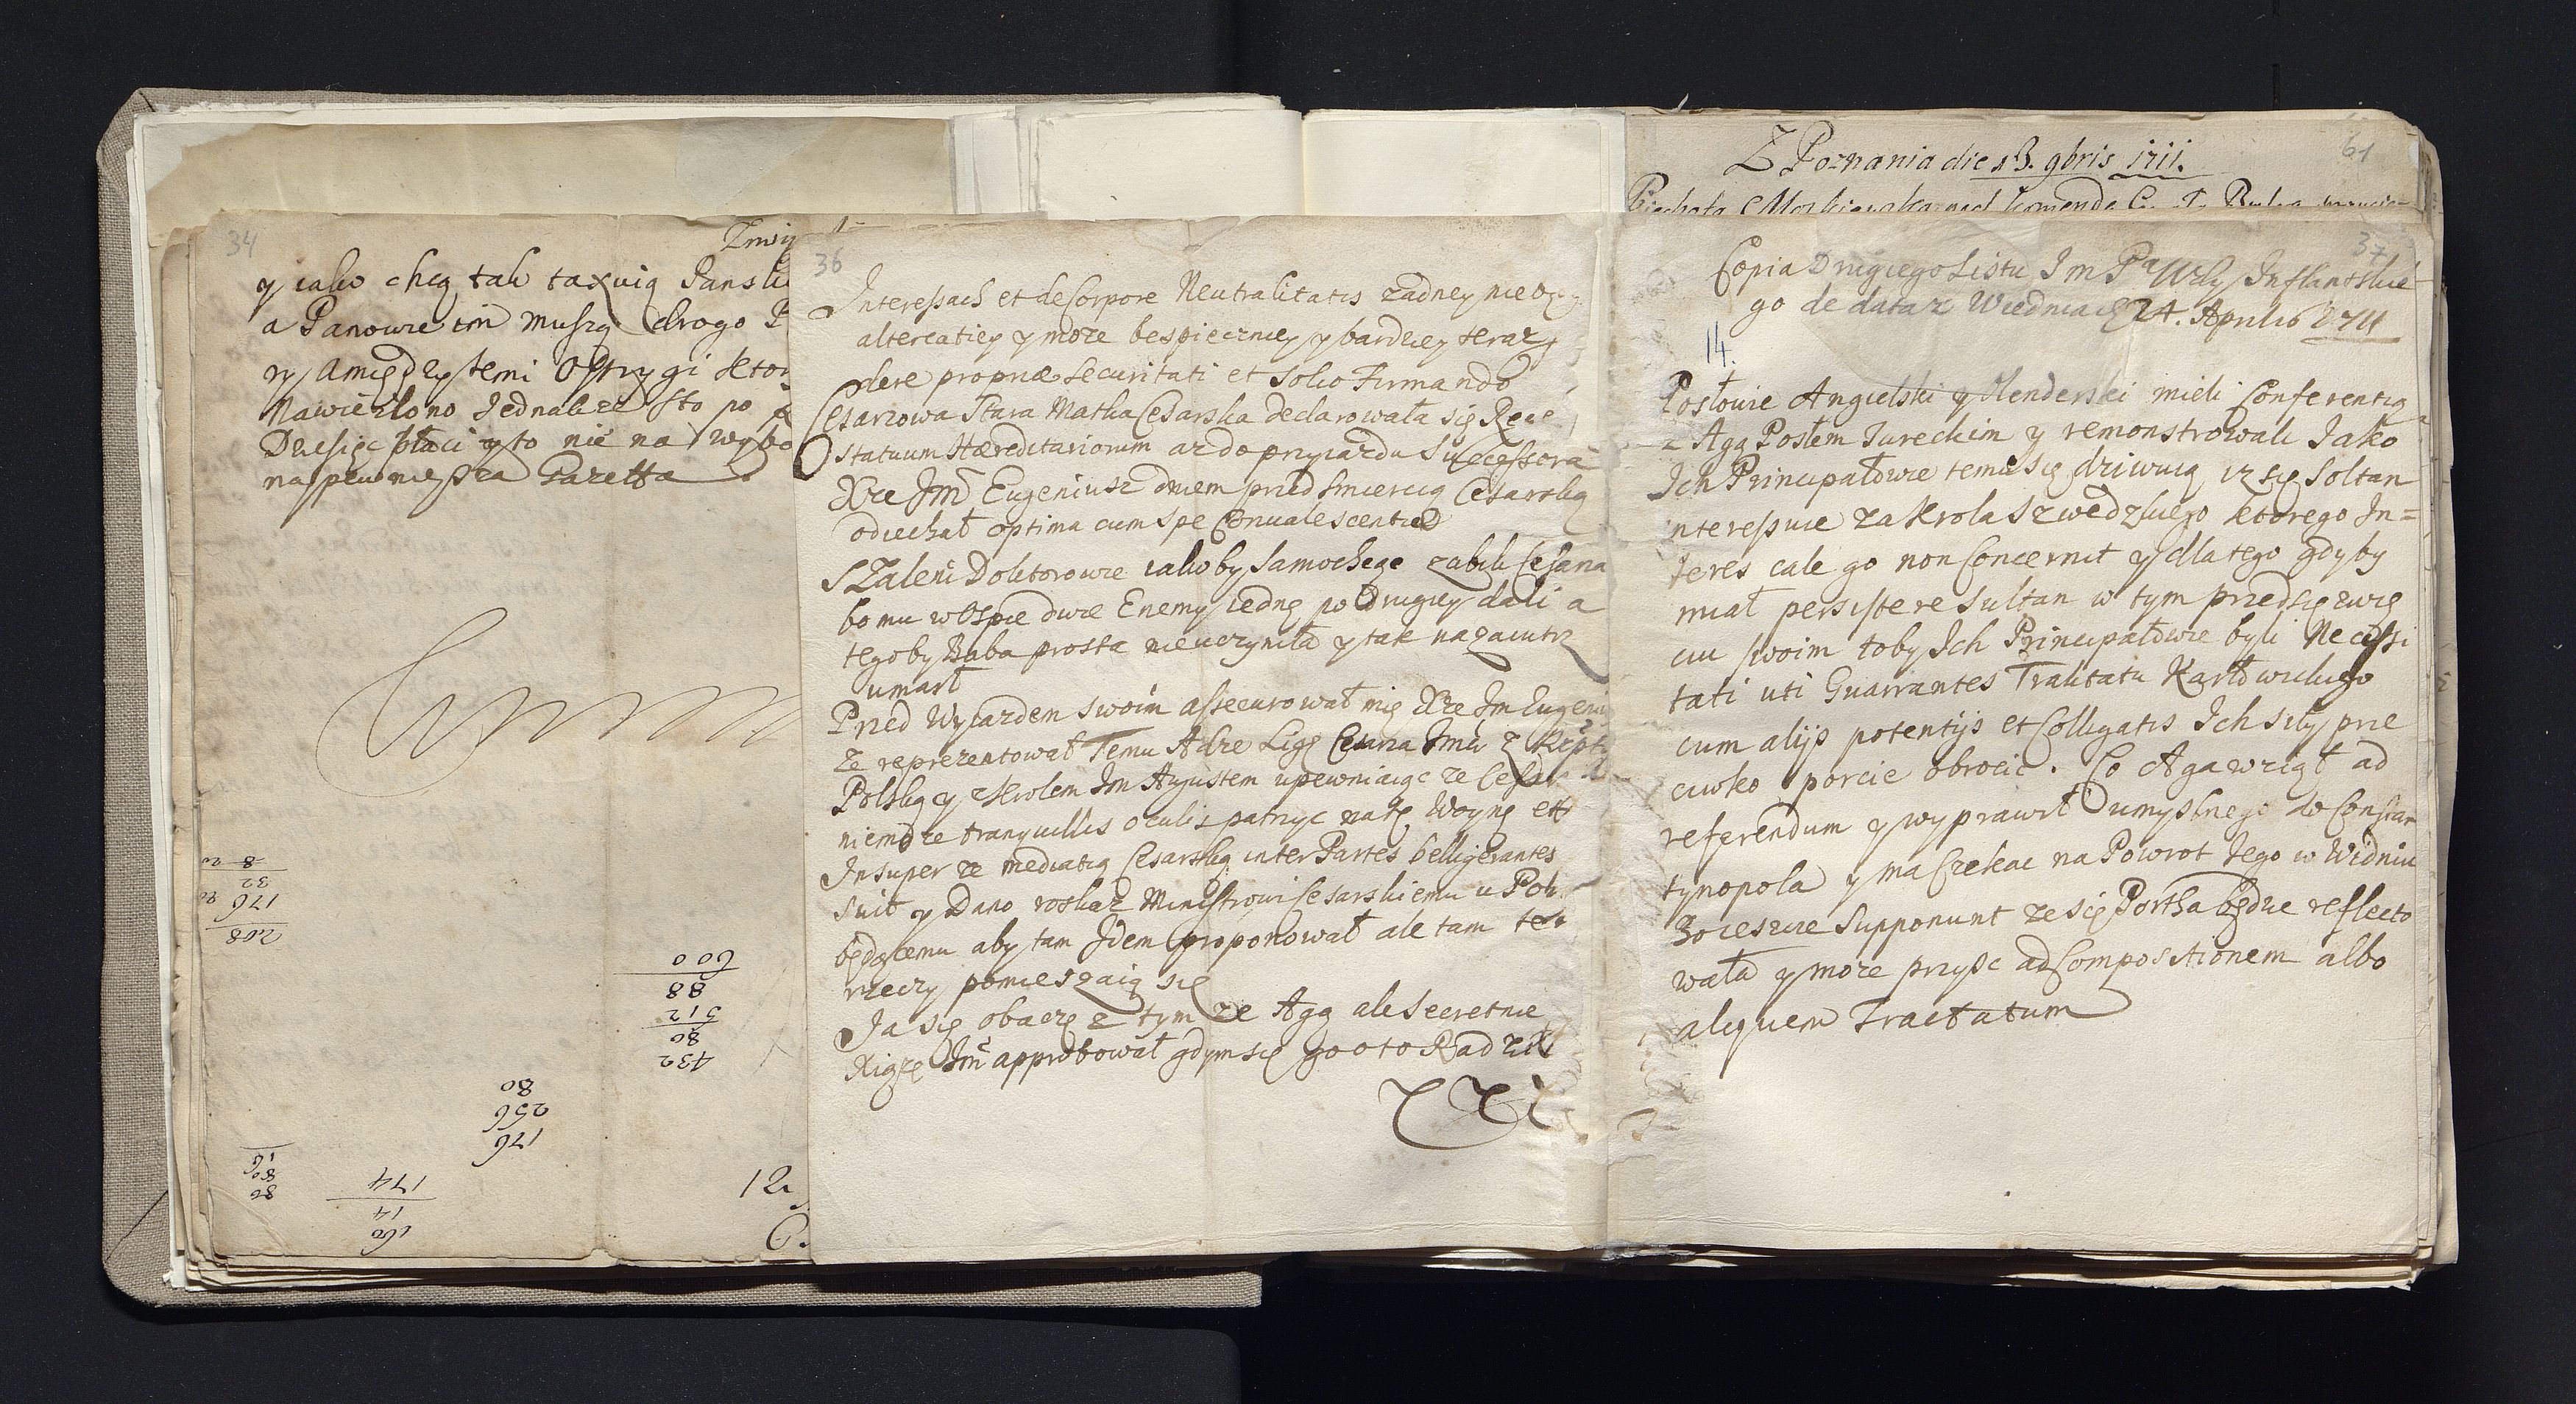 34
y iako chcą tak taxuią
a Panowie im muszą drogo
ry a między temi Ostrygi
Nawieziono Jednakze sto po
Dziesięc płaci y to nie na
napewnieysza Gazetta
8
32
176
208
600
88
512
80
432
80
256
176
174
14
160
12
36
Interessach et de Corpore Neutralitatis zadney nie
altercatiey y moze bespieczniey y bardziey teraz
dere propriæ securitati et solio Firmando
Cesarzowa Stara Matka Cesarska declarowała się
statuum Hæreditariorum az do przyiazdu Successora
Xze Jm Eugeniusz dniem przed smiercią Cesarską
odiechał optima cum spe Convalescentiæ
Szaleni Doktorowie iakoby samochcąc zabili Cesarza
bo mu w Ospie dwie Enemy iednę po drugiey dali a
tegoby Baba prosta nie uczyniła y tak nazaiutrz
umarł
Przed Wyiazdem swoim assecurował mię Xze Jm Eugeni
ze reprezentował Temu Adze Ligę Cesarza Jmci z
Polską y z Krolem Jm Augustem upewniaiąc ze Cesarz
niemoze tranquillis oculis patrzyc na tę Woynę ett
Insuper ze mediatią Cesarską inter Partes belligerantes
y Dano roskaz Ministrowi Cesarskiemu u
będącemu aby tam Idem proponował ale tam
rzeczy pomieszaią się
Ja się obaczę z tym ze Agą ale Secretnie
Xiąze Jmć approbował gdym się go o to Radził
Z Poznania die 13. 9bris 1711.
61
37
Copia Drugiego Listu Jm Pa Wdy Inflantskie
go de data z Wiednia 24. Aprilis 1711
14.
Posłowie Angielski y Olenderski mieli Conferentią
z Agą Posłem Tureckim y remonstrowali Jako
Ich Principałowie temu się dziwuią iz się Soltan
interessuie za Krola Szwedzkiego ktorego In=
teres cale go non Concernit y dla tego gdyby
miał persistere Sultan w tym przedsięwzię
ciu swoim toby Ich Principałowie byli Necessi
tati uti Guarrantes Traktatu Karłowickiego
cum alijs potentijs et Colligatis Ich siły prze
ciwko porcie obrocic. Co Aga wziął ad
referendum y wyprawił umyslnego do Constan
tynopola y ma Czekac na Powrot Jego w Widniu
Supponunt ze się Portha będzie reflecto
wała y moze przysc ad Compositionem albo
aliquem Tractatum